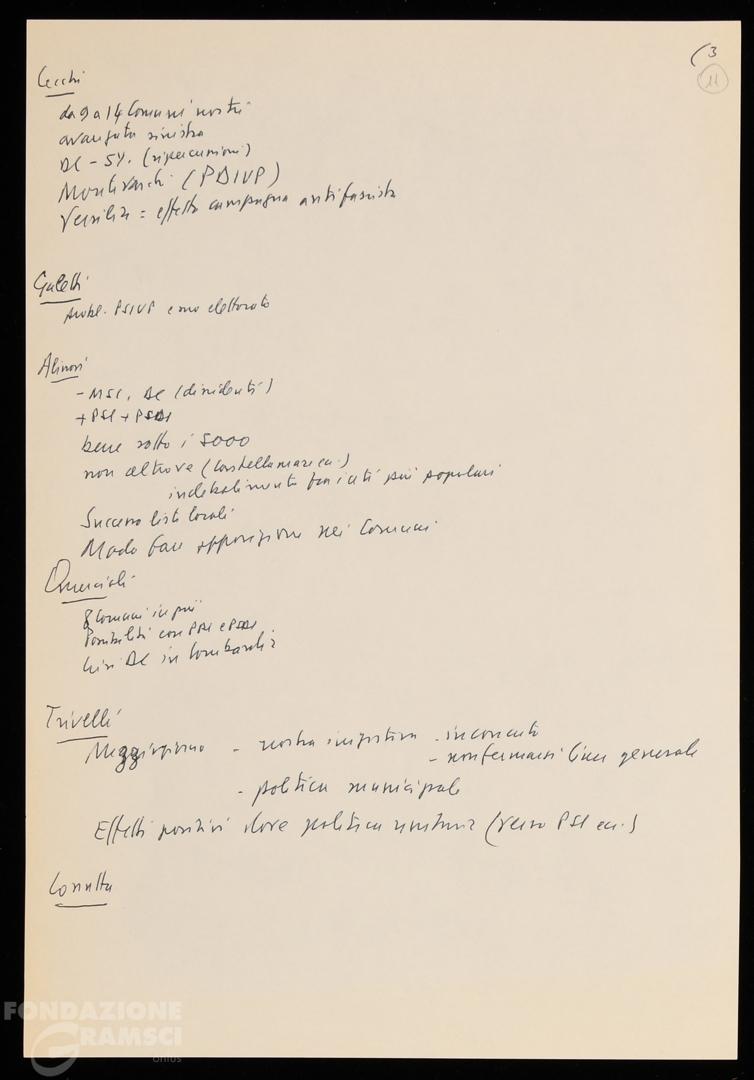 (3
11
Cecchi
da 9 a 14 Comuni nostri
avanzata sinistra
DC - 5%. (ripercussioni)
Montevarchi (PSIUP)
Versilia = effetto campagna antifascista
Galetti
probl. PSIUP e suo elettorato
Alinovi
- MSI, DC (dissidenti)
+ PSI + PSDI
bene sotto i 5000
non altrove (Castellamare ecc.)
indebolimento fra i ceti più popolari
Successo liste locali
Modo fare opposizione nei Comuni
Quercioli
8 Comuni in più
Possibilità con PSI e PSDI
Crisi DC in Lombardia
Trivelli
Mezzogiorno - nostra iniziativa - in concreto
- non fermarsi linea generale
- politica municipale
Effetti positivi dove politica unitaria (verso PSI ecc.)
Cossutta
FONDAZIONE
GRAMSCI
onlus